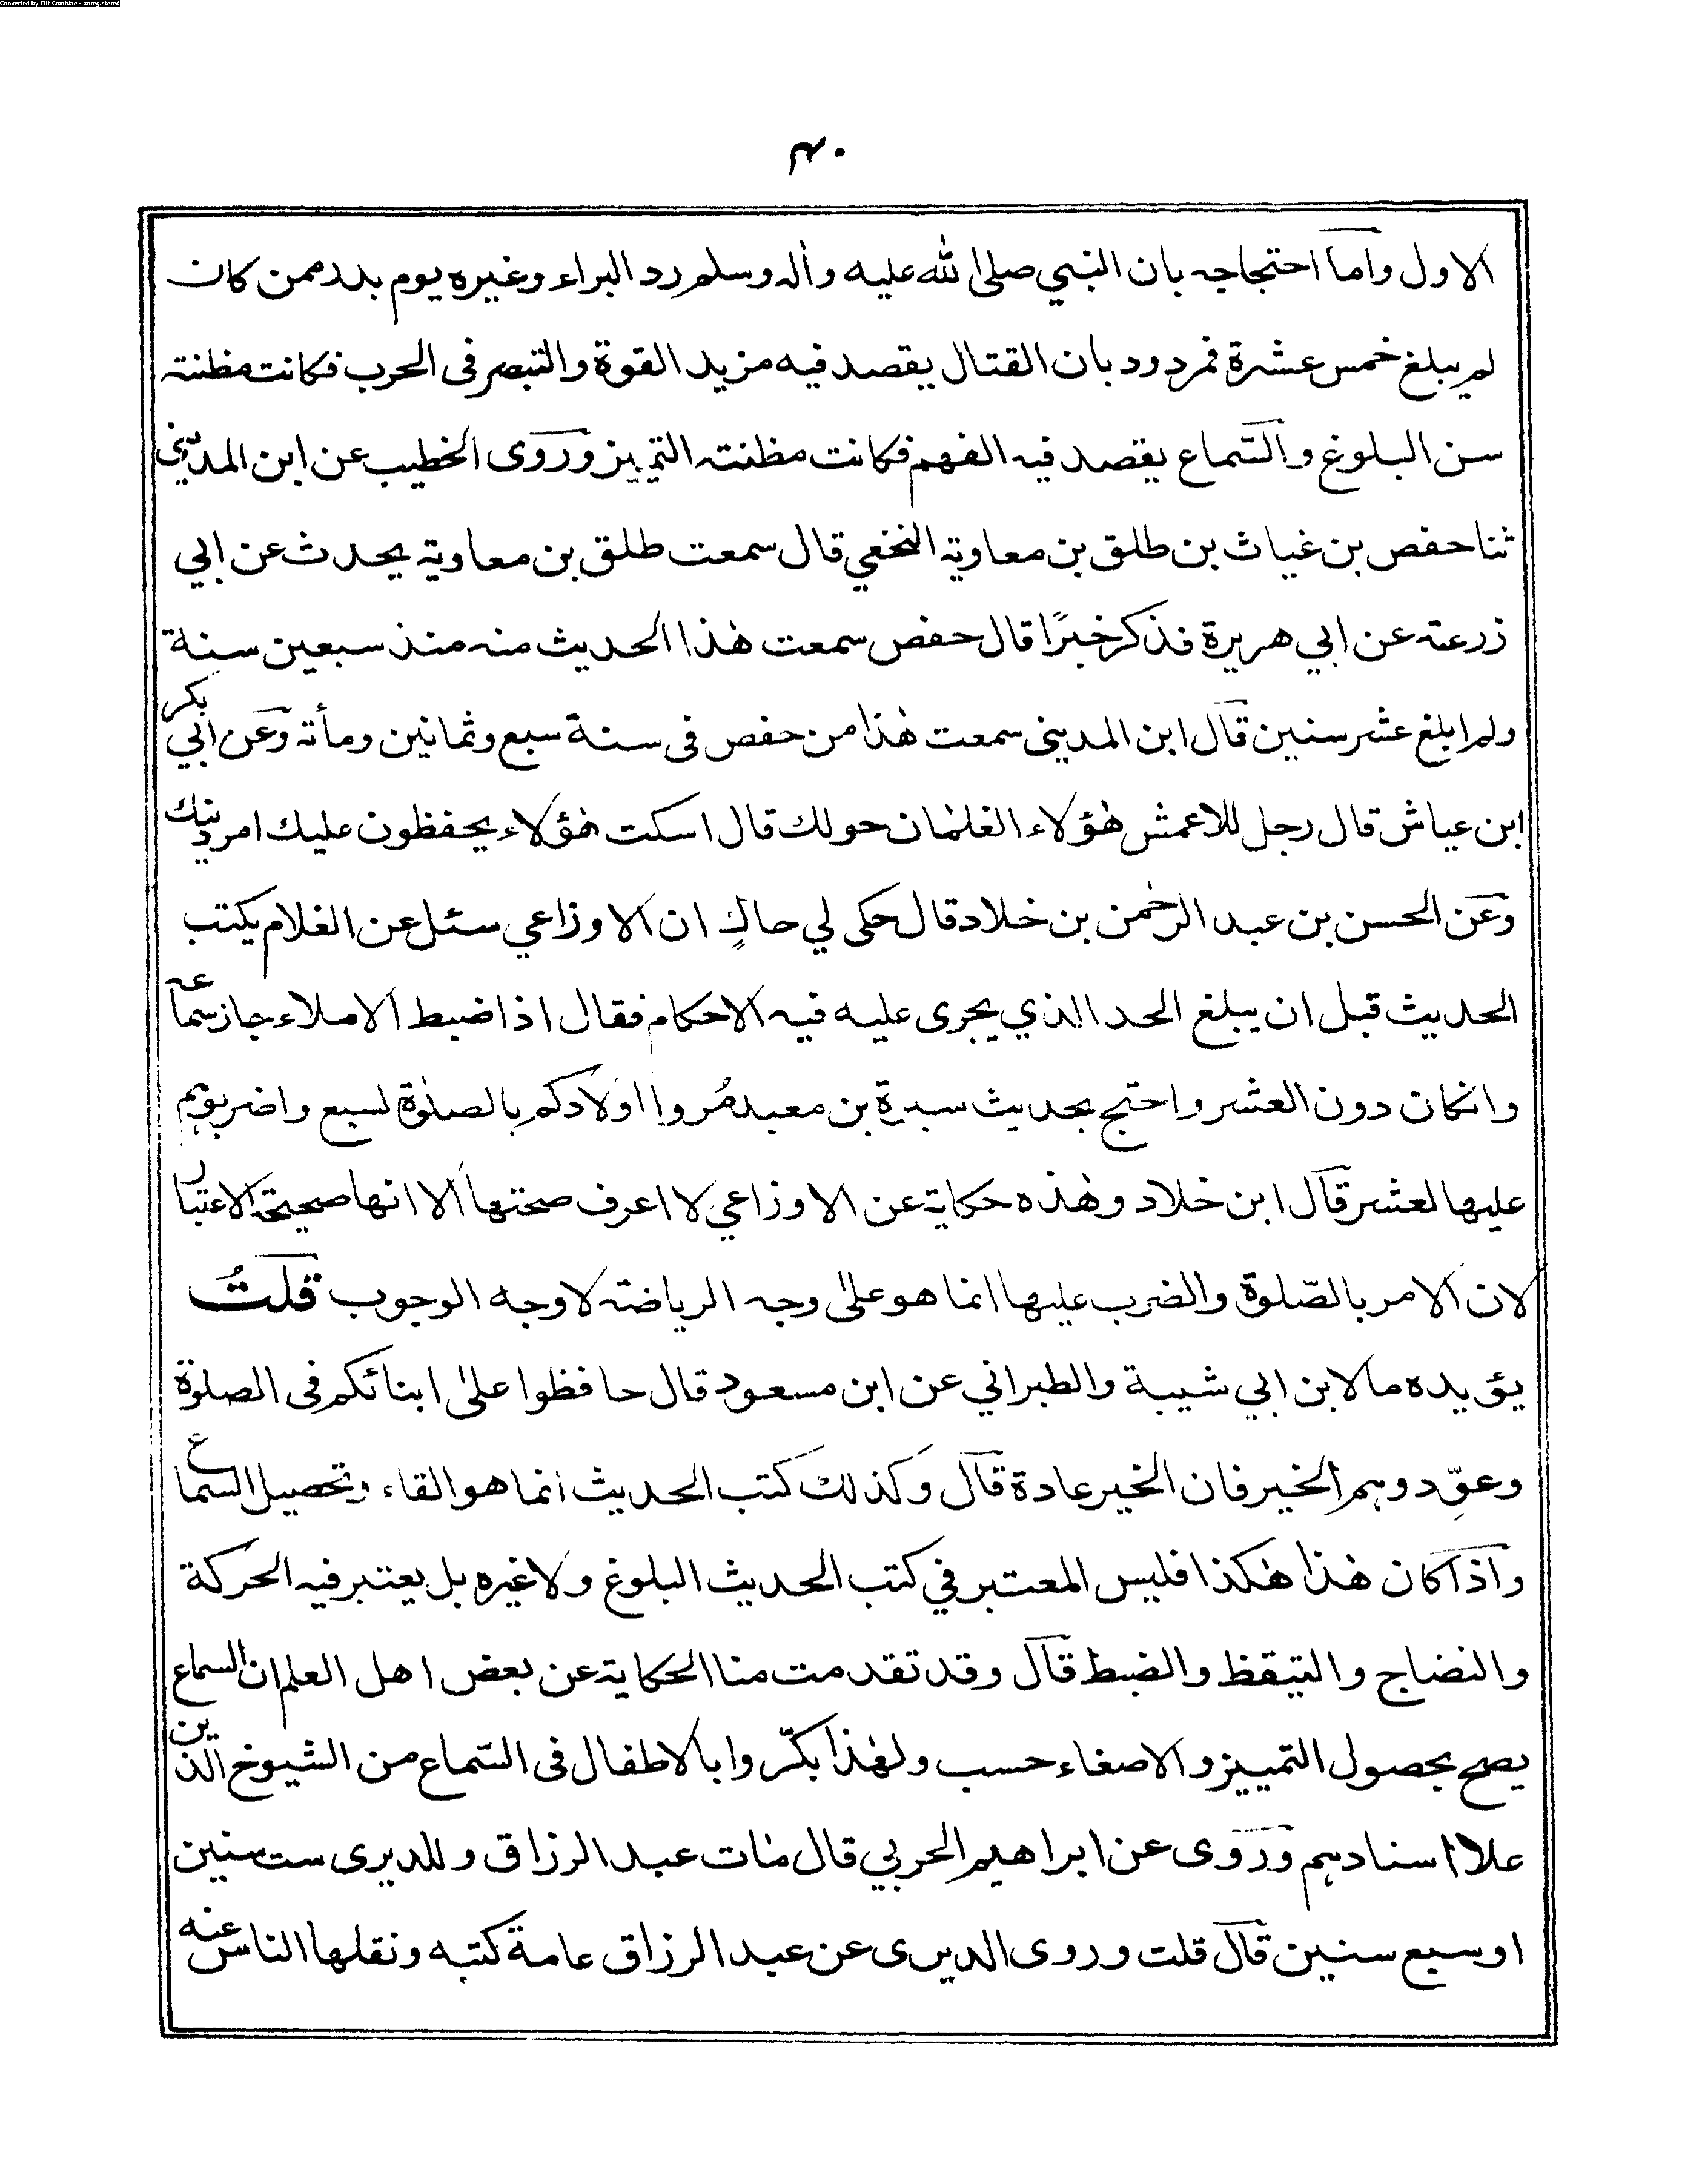 Converted by Tiff Combine - unregistered
۴۰
الاول واما احتجاجه بان النبي صلى الله عليه وأله وسلم رد البراء وغيره يوم بدر ممن كان
لم يبلغ خمس عشرة فمردود بان القتال يقصد فيه مزيد القوة والتبصر فى الحرب فكانت مظنته
سن البلوغ والسّماع يقصد فيه الفهم فكانت مظنته التمييز وروى الخطيب عن ابن المديني
ثنا حفص بن غياث بن طلق بن معاوية النخعي قال سمعت طلق بن معاوية يحدث عن ابي
زرعة عن ابي هريرة فذكر خبرًا قال حفص سمعت هٰذا الحديث منه منذ سبعين سنة
ولم ابلغ عشر سنين قال ابن المدينى سمعت هٰذا من حفص فى سنة سبع وثمانين ومأة وعن ابي بكر
ابن عياش قال رجل للاعمش هٰؤلاء الغلمان حولك قال اسكت هٰؤلاء يحفظون عليك امر دينك
وعن الحسن بن عبد الرحمٰن بن خلاد قال حكى لي حاكٍ ان الاوزاعي سئل عن الغلام يكتب
الحديث قبل ان يبلغ الحد الذي يجرى عليه فيه الاحكام فقال اذا ضبط الاملاء جاز سماعه
وانكان دون العشر واحتج بحديث سبرة بن معبد مُروا اولادكم بالصلوٰة لسبع واضربوهم
عليها لعشر قال ابن خلاد وهٰذه حكاية عن الاوزاعي لا اعرف صحتها الا انها صحيحة الاعتبار
لان الامر بالصّلوٰة والضرب عليها انما هو علىٰ وجه الرياضة لا وجه الوجوب قلتُ
يؤيده ما لابن ابي شيبة والطبراني عن ابن مسعود قال حافظوا علىٰ ابنائكم فى الصلوٰة
وعوِّدوهم الخير فان الخير عادة قال وكذلك كتب الحديث انما هو القاء وتحصيل السماع
واذا كان هٰذا هٰكذا فليس المعتبر في كتب الحديث البلوغ ولا غيره بل يعتبر فيه الحركة
والنضاج والتيقظ والضبط قال وقد تقدمت منا الحكاية عن بعض اهل العلم ان السماع
يصح بحصول التمييز والاصغاء حسب ولهٰذا بكّروا بالاطفال فى السّماع من الشيوخ الذين
علا اسنادهم وروى عن ابراهيم الحربي قال مات عبد الرزاق وللدبرى ست سنين
او سبع سنين قال قلت وروى الدبرى عن عبد الرزاق عامة كتبه ونقلها الناس عنه